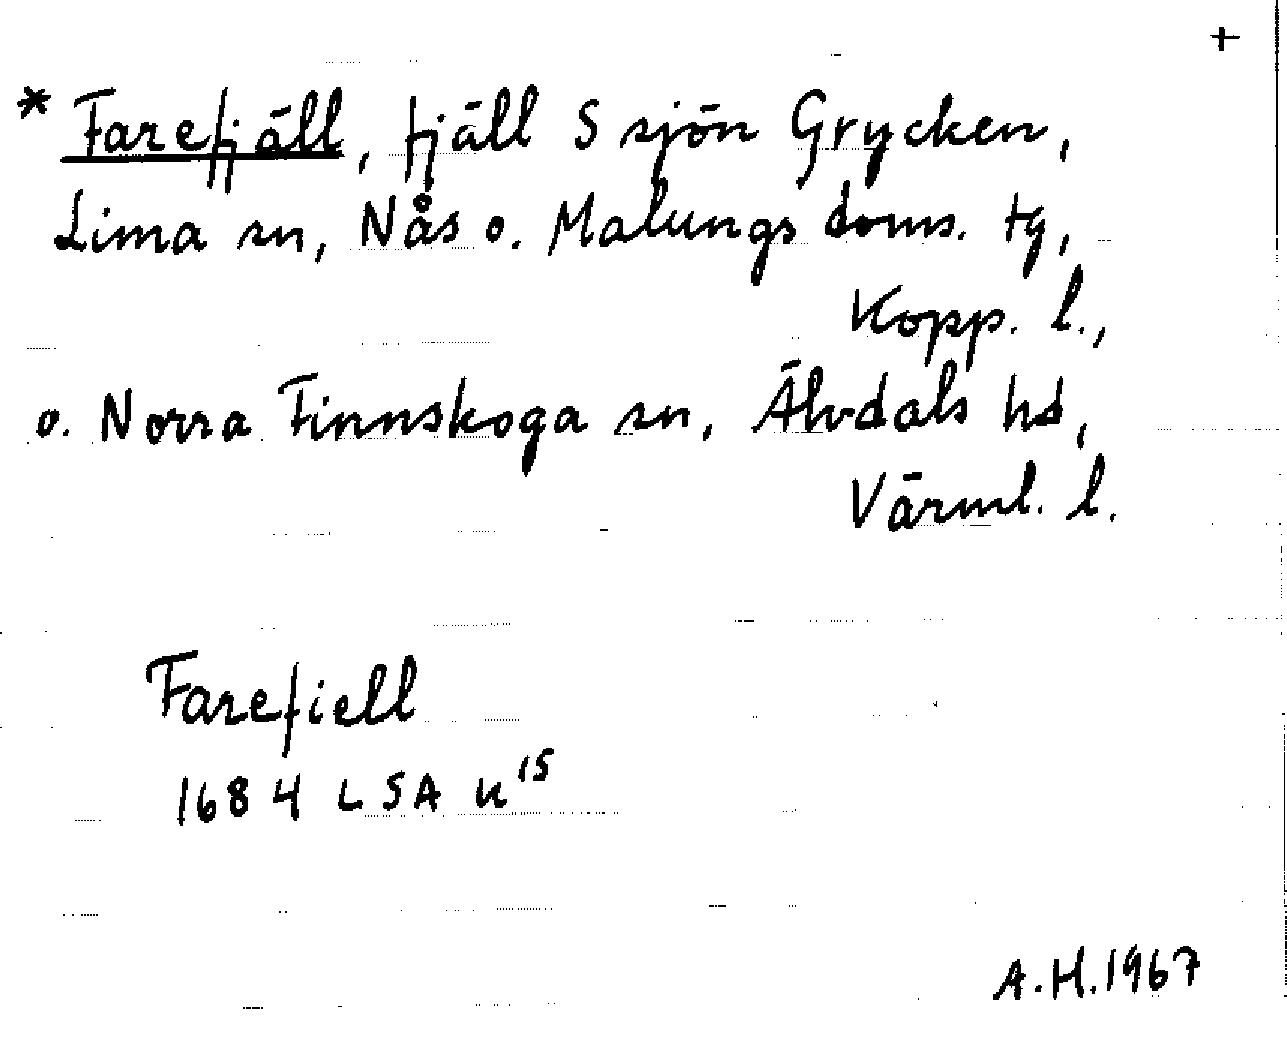 +
* Farefjäll, fjäll S sjön Grycken,
Lima sn, Nås o. Malungs doms. tg,
Kopp. l.,
o. Norra Finnskoga sn, Älvdals hd,
Värml. l.
Farefiell
1684 LSA u¹⁵
A.H. 1967